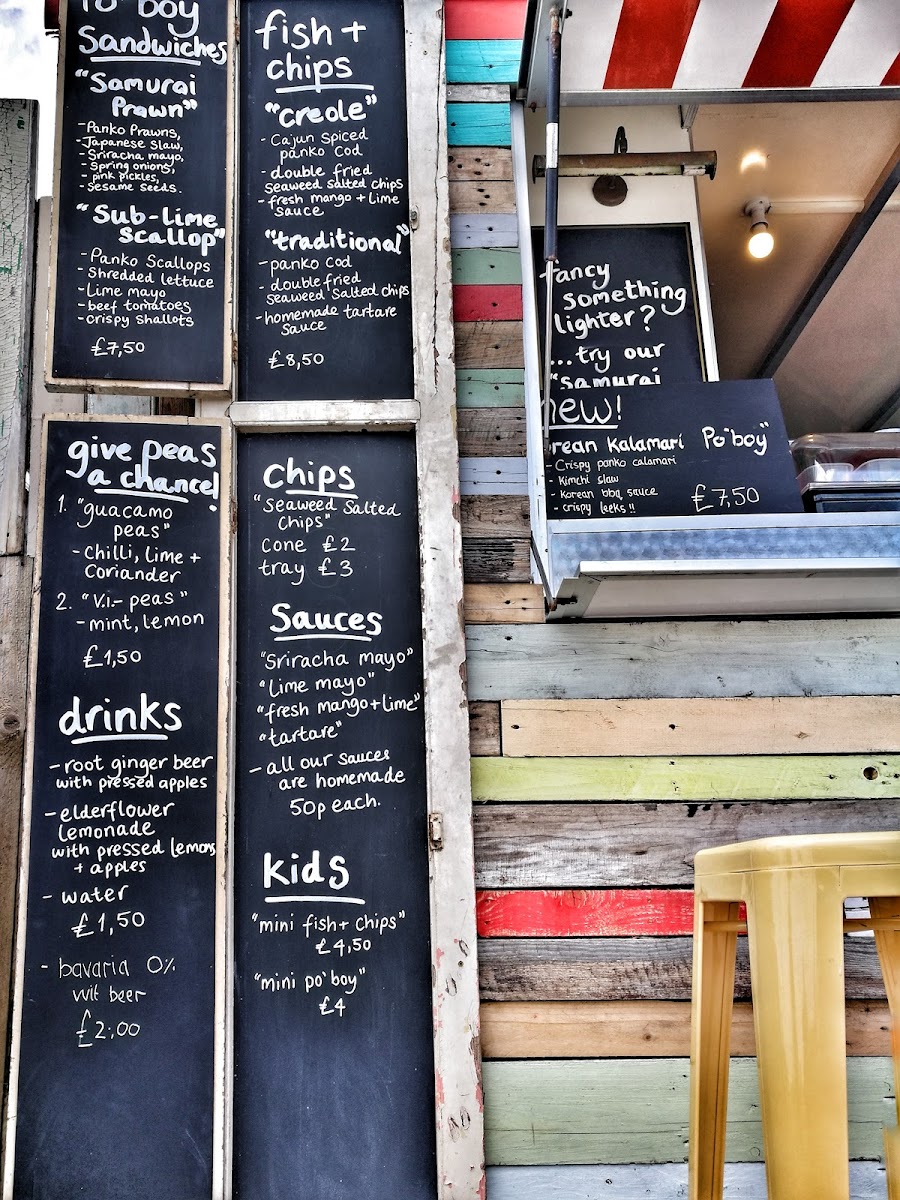 Po'boy
Sandwiches
"Samurai
Prawn"
- Panko Prawns,
- Japanese slaw,
- Sriracha mayo,
- spring onions,
- pink pickles,
- Sesame seeds.
"Sub-lime
Scallop"
- Panko Scallops
- Shredded lettuce
- Lime mayo
- beef tomatoes
- crispy shallots
£7,50
fish +
chips
"creole"
- Cajun spiced
panko cod
- double fried
seaweed salted chips
- fresh mango + lime
sauce
"traditional"
- panko cod
- double fried
seaweed salted chips
- homemade tartare
sauce
£8,50
give peas
a chance!
1. "guacamo
peas"
- chilli, lime +
coriander
2. "v.i.- peas"
- mint, lemon
£1,50
drinks
- root ginger beer
with pressed apples
- elderflower
lemonade
with pressed lemons
+ apples
- water
£1,50
- bavaria 0%
wit beer
£2:00
Chips
"Seaweed Salted
Chips"
Cone £2
tray £3
Sauces
"Sriracha mayo"
"lime mayo"
"fresh mango + lime"
"tartare"
- all our sauces
are homemade
50p each.
kids
"mini fish + chips"
£4,50
"mini po'boy"
£4
fancy
something
lighter?
...try our
"samurai
new!
rean kalamari Po'boy"
- Crispy panko calamari
- Kimchi slaw
- Korean bbq sauce
- crispy leeks!!
£7,50